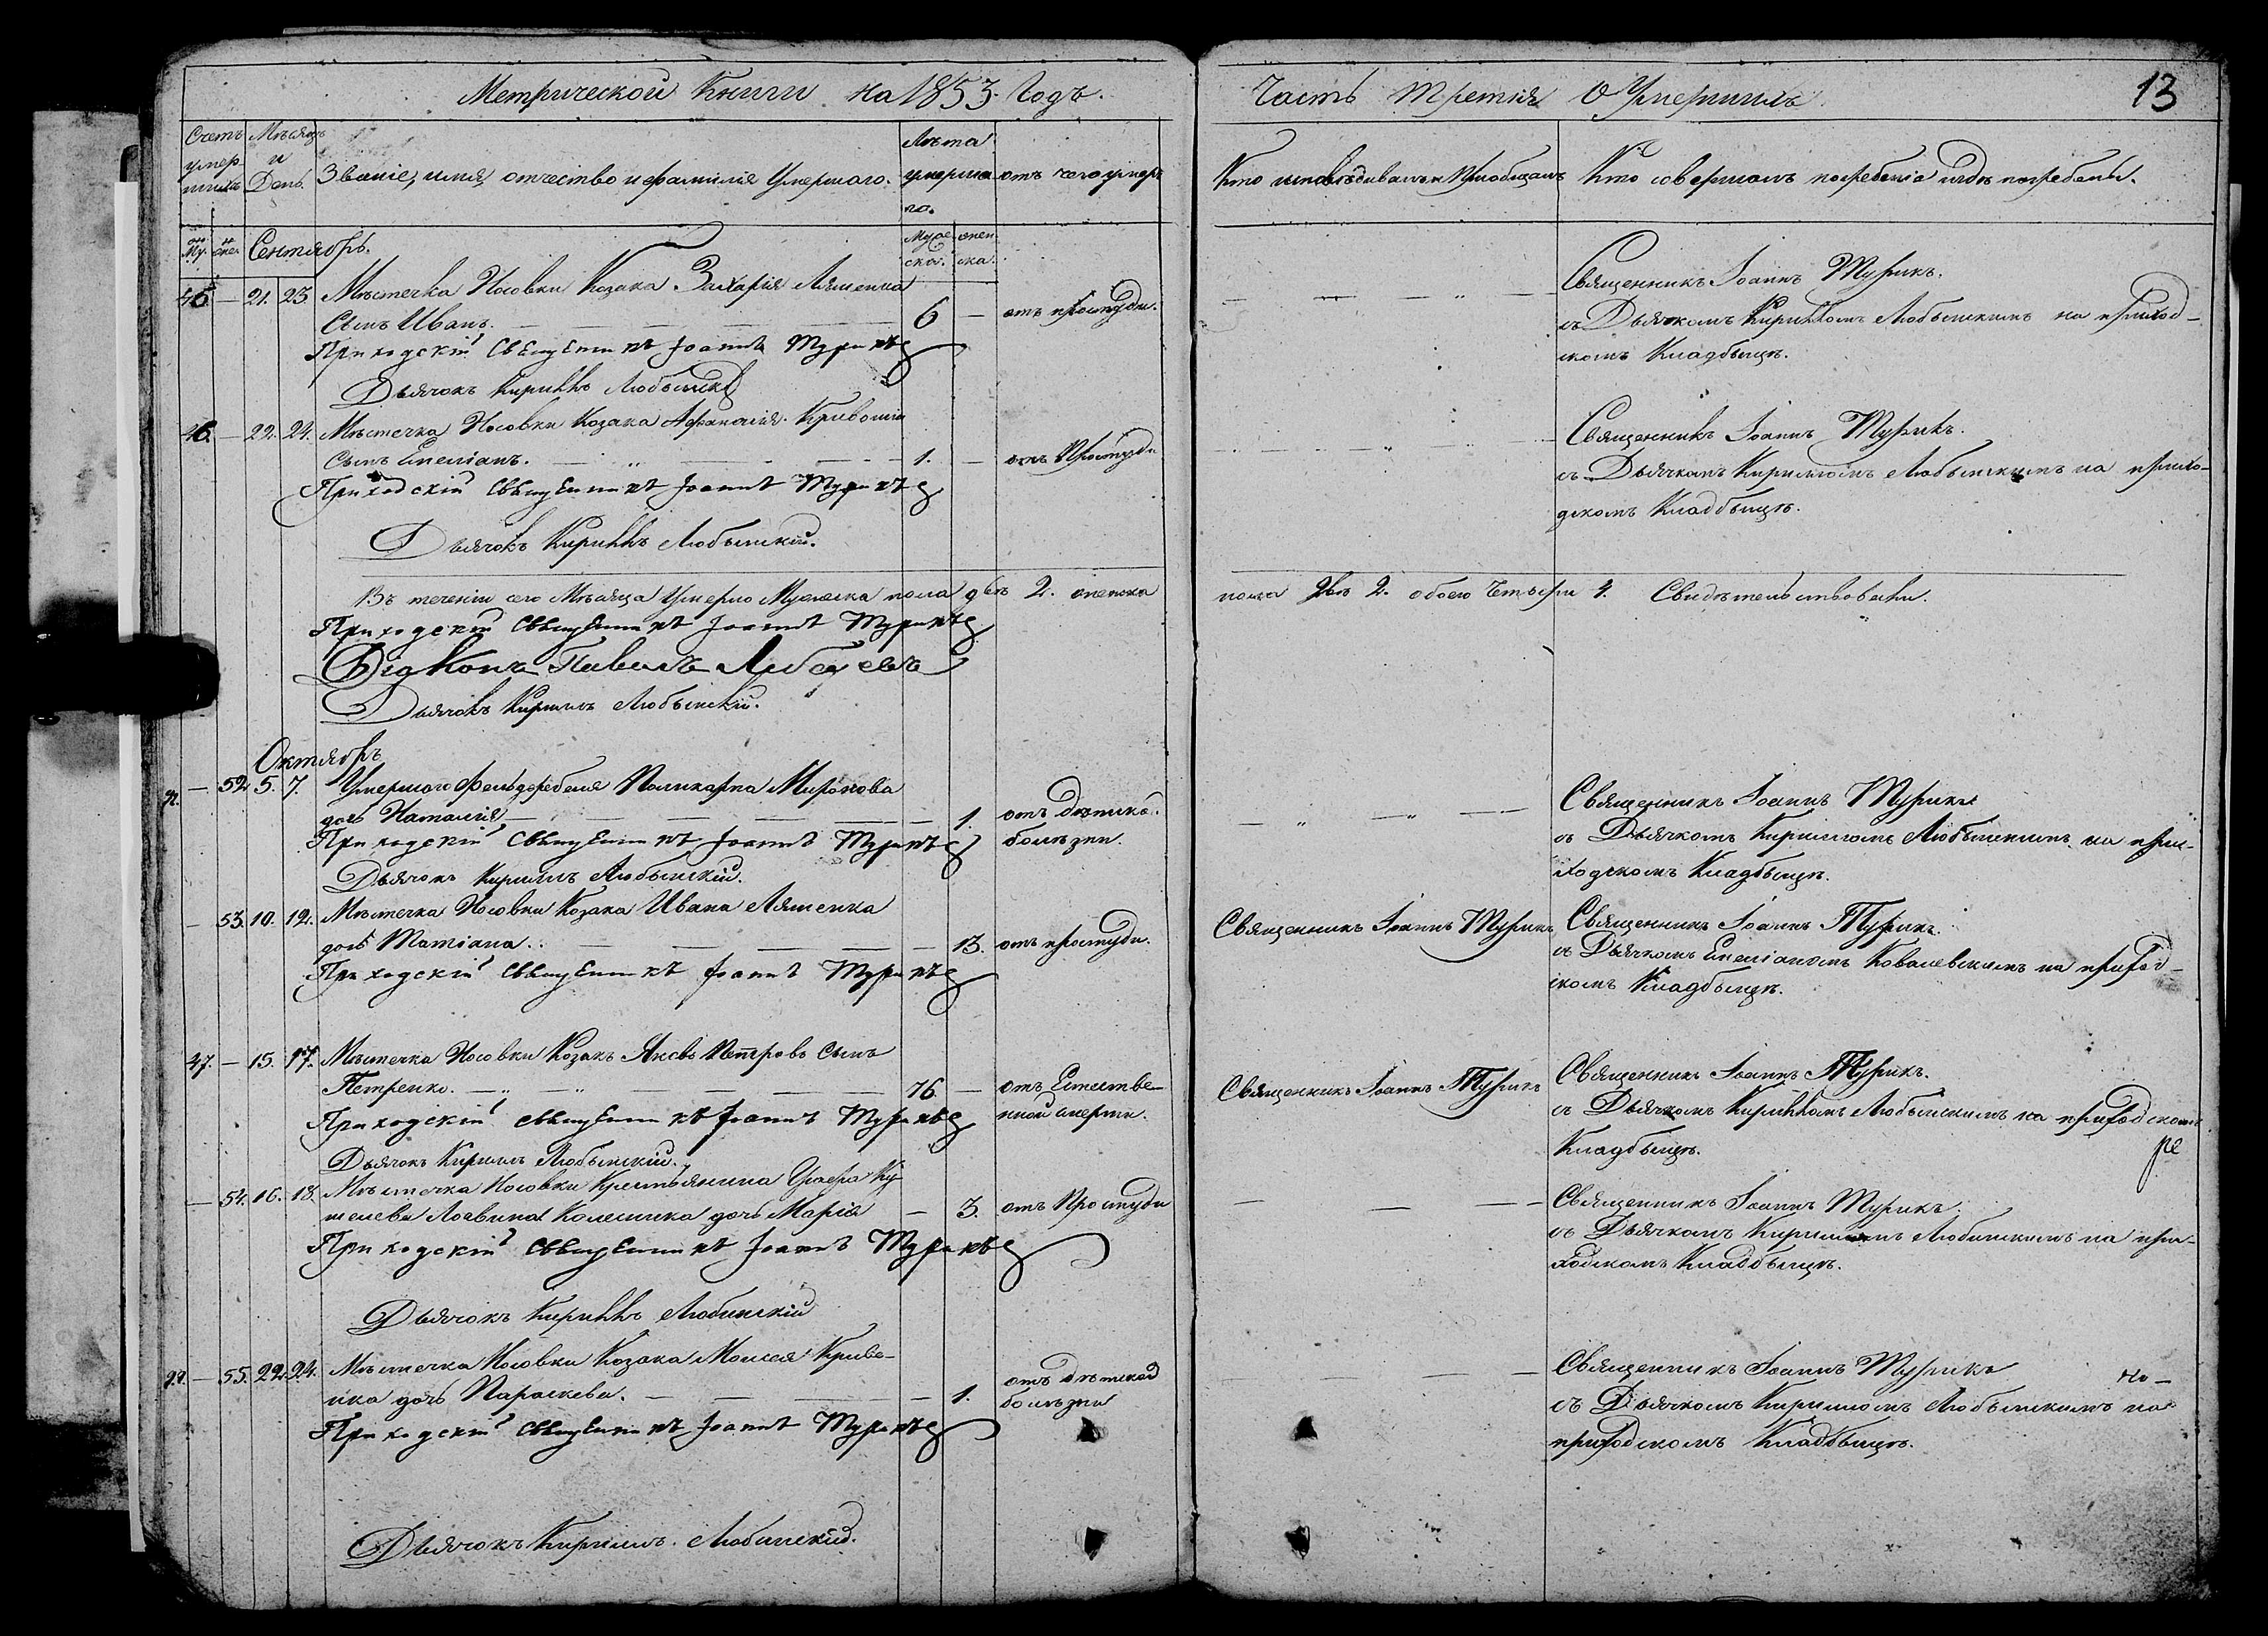 Метрической Книги на 1853 годъ.
Часть третія О Умершихъ
13
Счетъ умершихъ
Мѣсяцъ и День.
Званіе, имя, отчество и фамилія Умершаго.
Лѣта умершаго.
отъ чего умеръ
Кто исповѣдывалъ и Пріобщалъ
Кто совершалъ погребеніе и гдѣ погребены.
Сентябрь.
46 — 21. 23. Мѣстечка Носовки Козака Захарія Ляшенка
сынъ Иванъ. — 6 — отъ простуды.
Приходскій Священникъ Іоаннъ Турикъ
Дьячокъ Кириллъ Любынскій
Священникъ Іоаннъ Турикъ.
съ Дьячкомъ Кирилломъ Любынскимъ на приход-
скомъ Кладбыщѣ.
46. — 22. 24. Мѣстечка Носовки Козака Афанасія Кривошія
сынъ Емеліанъ. — 1. — отъ Простуды
Приходскій Священникъ Іоаннъ Турикъ
Дьячокъ Кириллъ Любынскій.
Священникъ Іоаннъ Турикъ.
съ Дьячкомъ Кирилломъ Любынскимъ на прихо-
дскомъ Кладбыщѣ.
Въ теченіи сего Мѣсяца Умерло Мужеска пола двѣ 2. женска пола двѣ 2. обоего Четыри 4. Свидѣтельствовали.
Приходскій Священникъ Іоаннъ Турикъ
Діаконъ Павелъ
Дьячокъ Кириллъ Любынскій.
Октябрь
— 52 5. 7. Умершаго Фельдфебеля Поликарпа Миронова
дочь Наталія — 1. отъ дѣтской
болѣзни.
Приходскій Священникъ Іоаннъ Турикъ
Дьячокъ Кириллъ Любынскій.
Священникъ Іоаннъ Турикъ
съ Дьячкомъ Кирилломъ Любынскимъ на при-
ходскомъ Кладбыщѣ.
— 53. 10. 12. Мѣстечка Носовки Козака Ивана Ляшенка
дочь Татіана. — 13. отъ простуды.
Приходскій Священникъ Іоаннъ Турикъ
Священникъ Іоаннъ Турикъ
Священникъ Іоаннъ Турикъ.
съ Дьячкомъ Емеліаномъ Ковалевскимъ на приход-
скомъ Кладбыщѣ.
47. — 15. 17. Мѣстечка Носовки Козакъ Яковъ Петровъ сынъ
Петренко. — 76 — отъ Естестве-
нной смерти.
Приходскій Священникъ Іоаннъ Турикъ
Дьячокъ Кириллъ Любынскій.
Священникъ Іоаннъ Турикъ
Священникъ Іоаннъ Турикъ.
съ Дьячкомъ Кирилломъ Любынскимъ на приходскомъ
Кладбыщѣ.
— 54. 16. 18. Мѣстечка Носовки Крестьянина Графа Ку-
шелева Колесника дочь Марія — 3. отъ Простуды
Приходскій Священникъ Іоаннъ Турикъ
Дьячокъ Кириллъ Любинскій
Священникъ Іоаннъ Турикъ.
съ Дьячкомъ Кирилломъ Любинскимъ на при-
ходскомъ Кладбыщѣ.
— 55. 22. 24. Мѣстечка Носовки Козака Моисея Криве-
нка дочь Параскева. — 1. отъ дѣтской
болѣзни
Приходскій Священникъ Іоаннъ Турикъ
Дьячокъ Кириллъ Любинскій.
Священникъ Іоаннъ Турикъ
съ Дьячкомъ Кирилломъ Любынскимъ на
приходскомъ Кладбыщѣ.